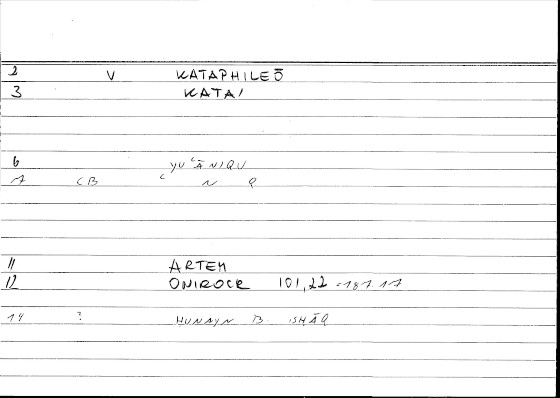 2 V KATAPHILEŌ
3 KATA/
6 YUʿĀNIQU
7 CB ʿ N Q
11 ARTEM
12 ONIROCR 101,22 = 187.17
14 ? HUNAYN B. ISḤĀQ